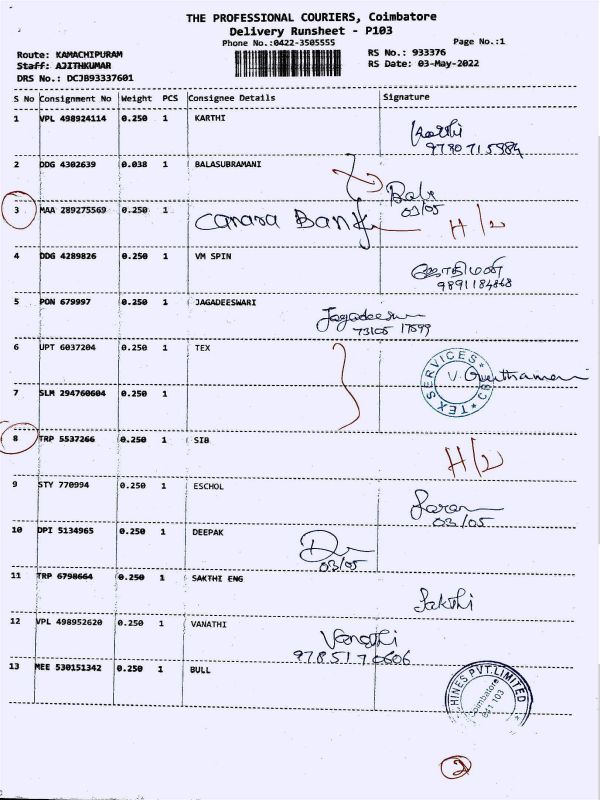 THE PROFESSIONAL COURIERS, Coimbatore
Delivery Runsheet - P103
Phone No.:0422-3505555
Page No.:1
Route: KAMACHIPURAM
RS No.: 933376
Staff: AJITHKUMAR
RS Date: 03-May-2022
DRS No.: DCJB93337601
S No Consignment No Weight PCS Consignee Details Signature
1 VPL 498924114 0.250 1 KARTHI Karthi
9780715984
2 DDG 4302639 0.038 1 BALASUBRAMANI Bala
03/05
3 MAA 289275569 0.250 1 Canara Bank H/W
4 DDG 4289826 0.250 1 VM SPIN ஜோதிமணி
9891184868
5 PON 679997 0.250 1 JAGADEESWARI
73105 17599
6 UPT 6037204 0.250 1 TEX
TEX SERVICES
7 SLM 294760604 0.250 1
8 TRP 5537266 0.250 1 SIB H/W
9 STY 770994 0.250 1 ESCHOL Saran
03/05
10 DPI 5134965 0.250 1 DEEPAK
03/05
11 TRP 6798664 0.250 1 SAKTHI ENG Sakthi
12 VPL 498952620 0.250 1 VANATHI Vanathi
9785170606
13 MEE 530151342 0.250 1 BULL
HINES PVT.LIMITED
Coimbatore
641 103
2